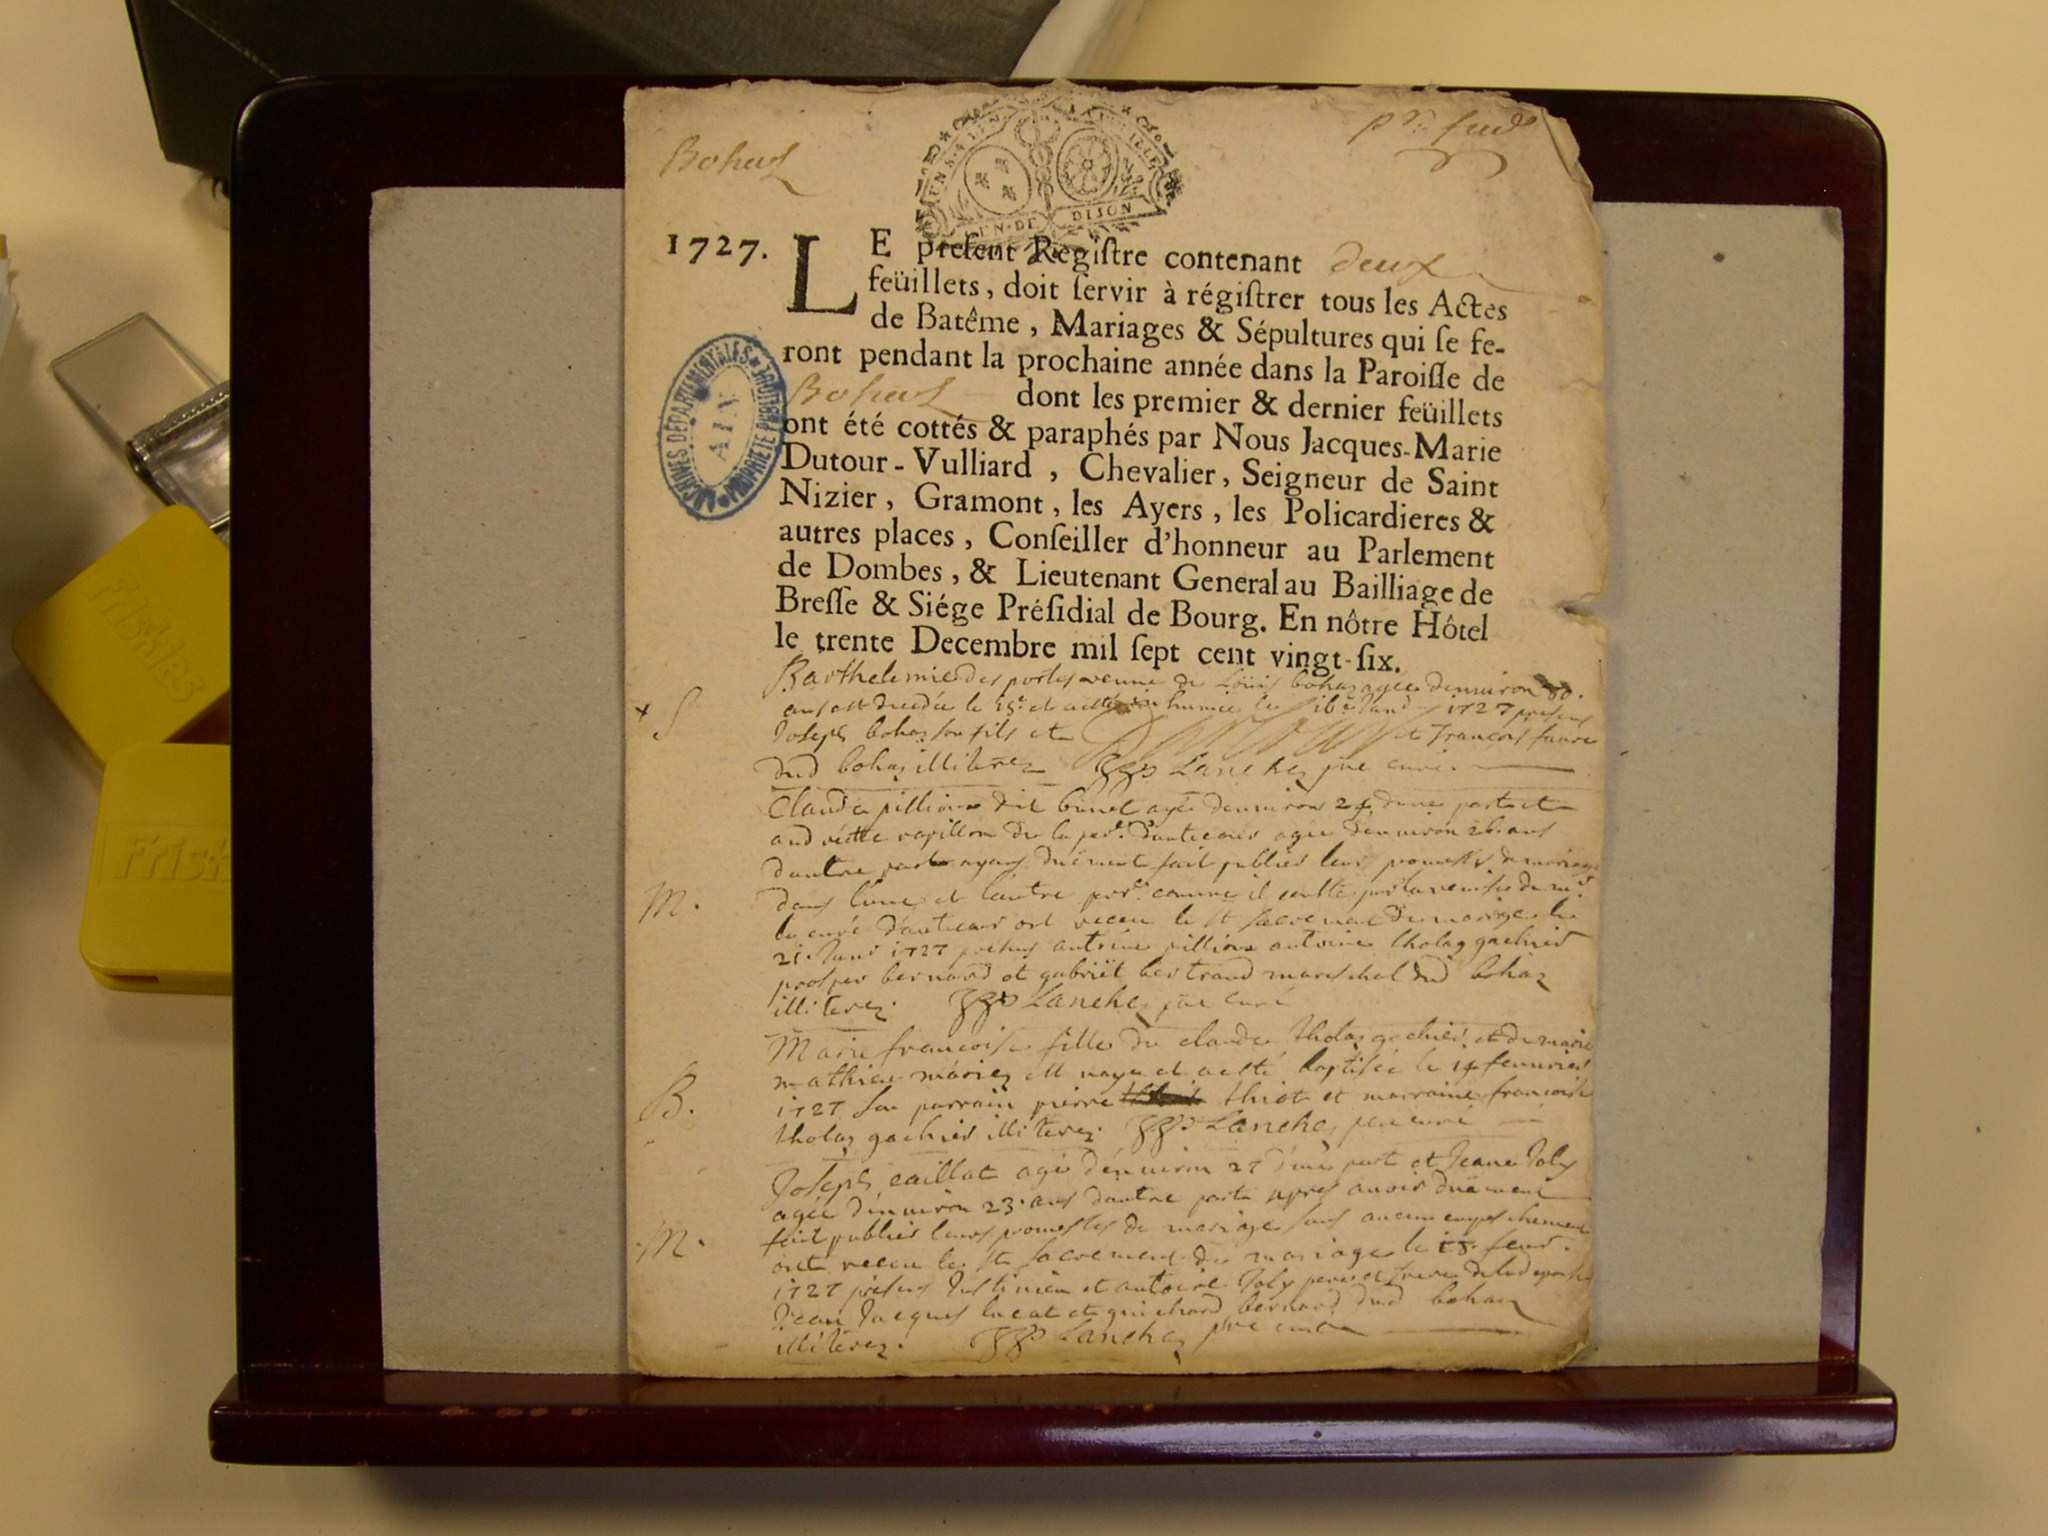 Bohas
GEN·DE DIJON
1727. LE preſent Regiſtre contenant deux
feüillets, doit ſervir à régiſtrer tous les Actes
de Batême, Mariages & Sépultures qui ſe fe-
ront pendant la prochaine année dans la Paroiſſe de
Bohas dont les premier & dernier feüillets
ont été cottés & paraphés par Nous Jacques-Marie
Dutour-Vulliard, Chevalier, Seigneur de Saint
Nizier, Gramont, les Ayers, les Policardieres &
autres places, Conſeiller d'honneur au Parlement
de Dombes, & Lieutenant General au Bailliage de
Breſſe & Siége Préſidial de Bourg. En nôtre Hôtel
le trente Decembre mil ſept cent vingt-ſix.
ARCHIVES DÉPARTEMENTALES
AIN
PROPRIÉTÉ PUBLIQUE
Barthelemie des portes veuve de Loüis bohas agée denuiron 80.
S
ans est decedée le 15e et a esté inhumée le 16e Janu 1727 presens
Joseph bohas son fils et et francois faure
dud bohas illiterez Lanchez ptre curé
Claude pillion dit agé denuiron 24 dune part et
papillon de la par. agée denuiron 26 ans
dautre part ayans düement fait publier leurs promesses de mariage
M.
dans lune et lautre par. comme il conste par la remise de mr
le curé ont receu le st sacrement de mariage le
21. Janu 1727 presens antoine pillion antoine tholas gachier
prosper bernard et gabriel bertrand mareschal dud bohas
illiterez. Lanchez ptre curé
Marie francoise fille de claude tholas gachier et de marie
mathieu mariez est nayé et a esté baptisée le 14 feurier
B.
1727 son parrain pierre thiot et marraine francoise
tholas gachier illiterez. Lanchez ptre curé
Joseph caillat agé denuiron 27 dune part et Jeane Joly
agée denuiron 23. ans dautre part apres auoir düement
M.
fait publier leurs promesses de mariage sans aucun empeschement
ont receu le st sacrement de mariage le 18. feur.
1727 presens Justinien et antoine Joly pere et frere de
Jean Jacques lucat et guichard bernard dud bohas
illiterez. Lanchez ptre curé
Friskies
Frisk